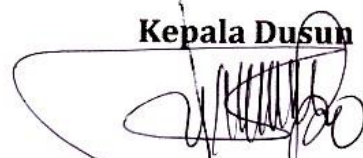 Kepala Dusun